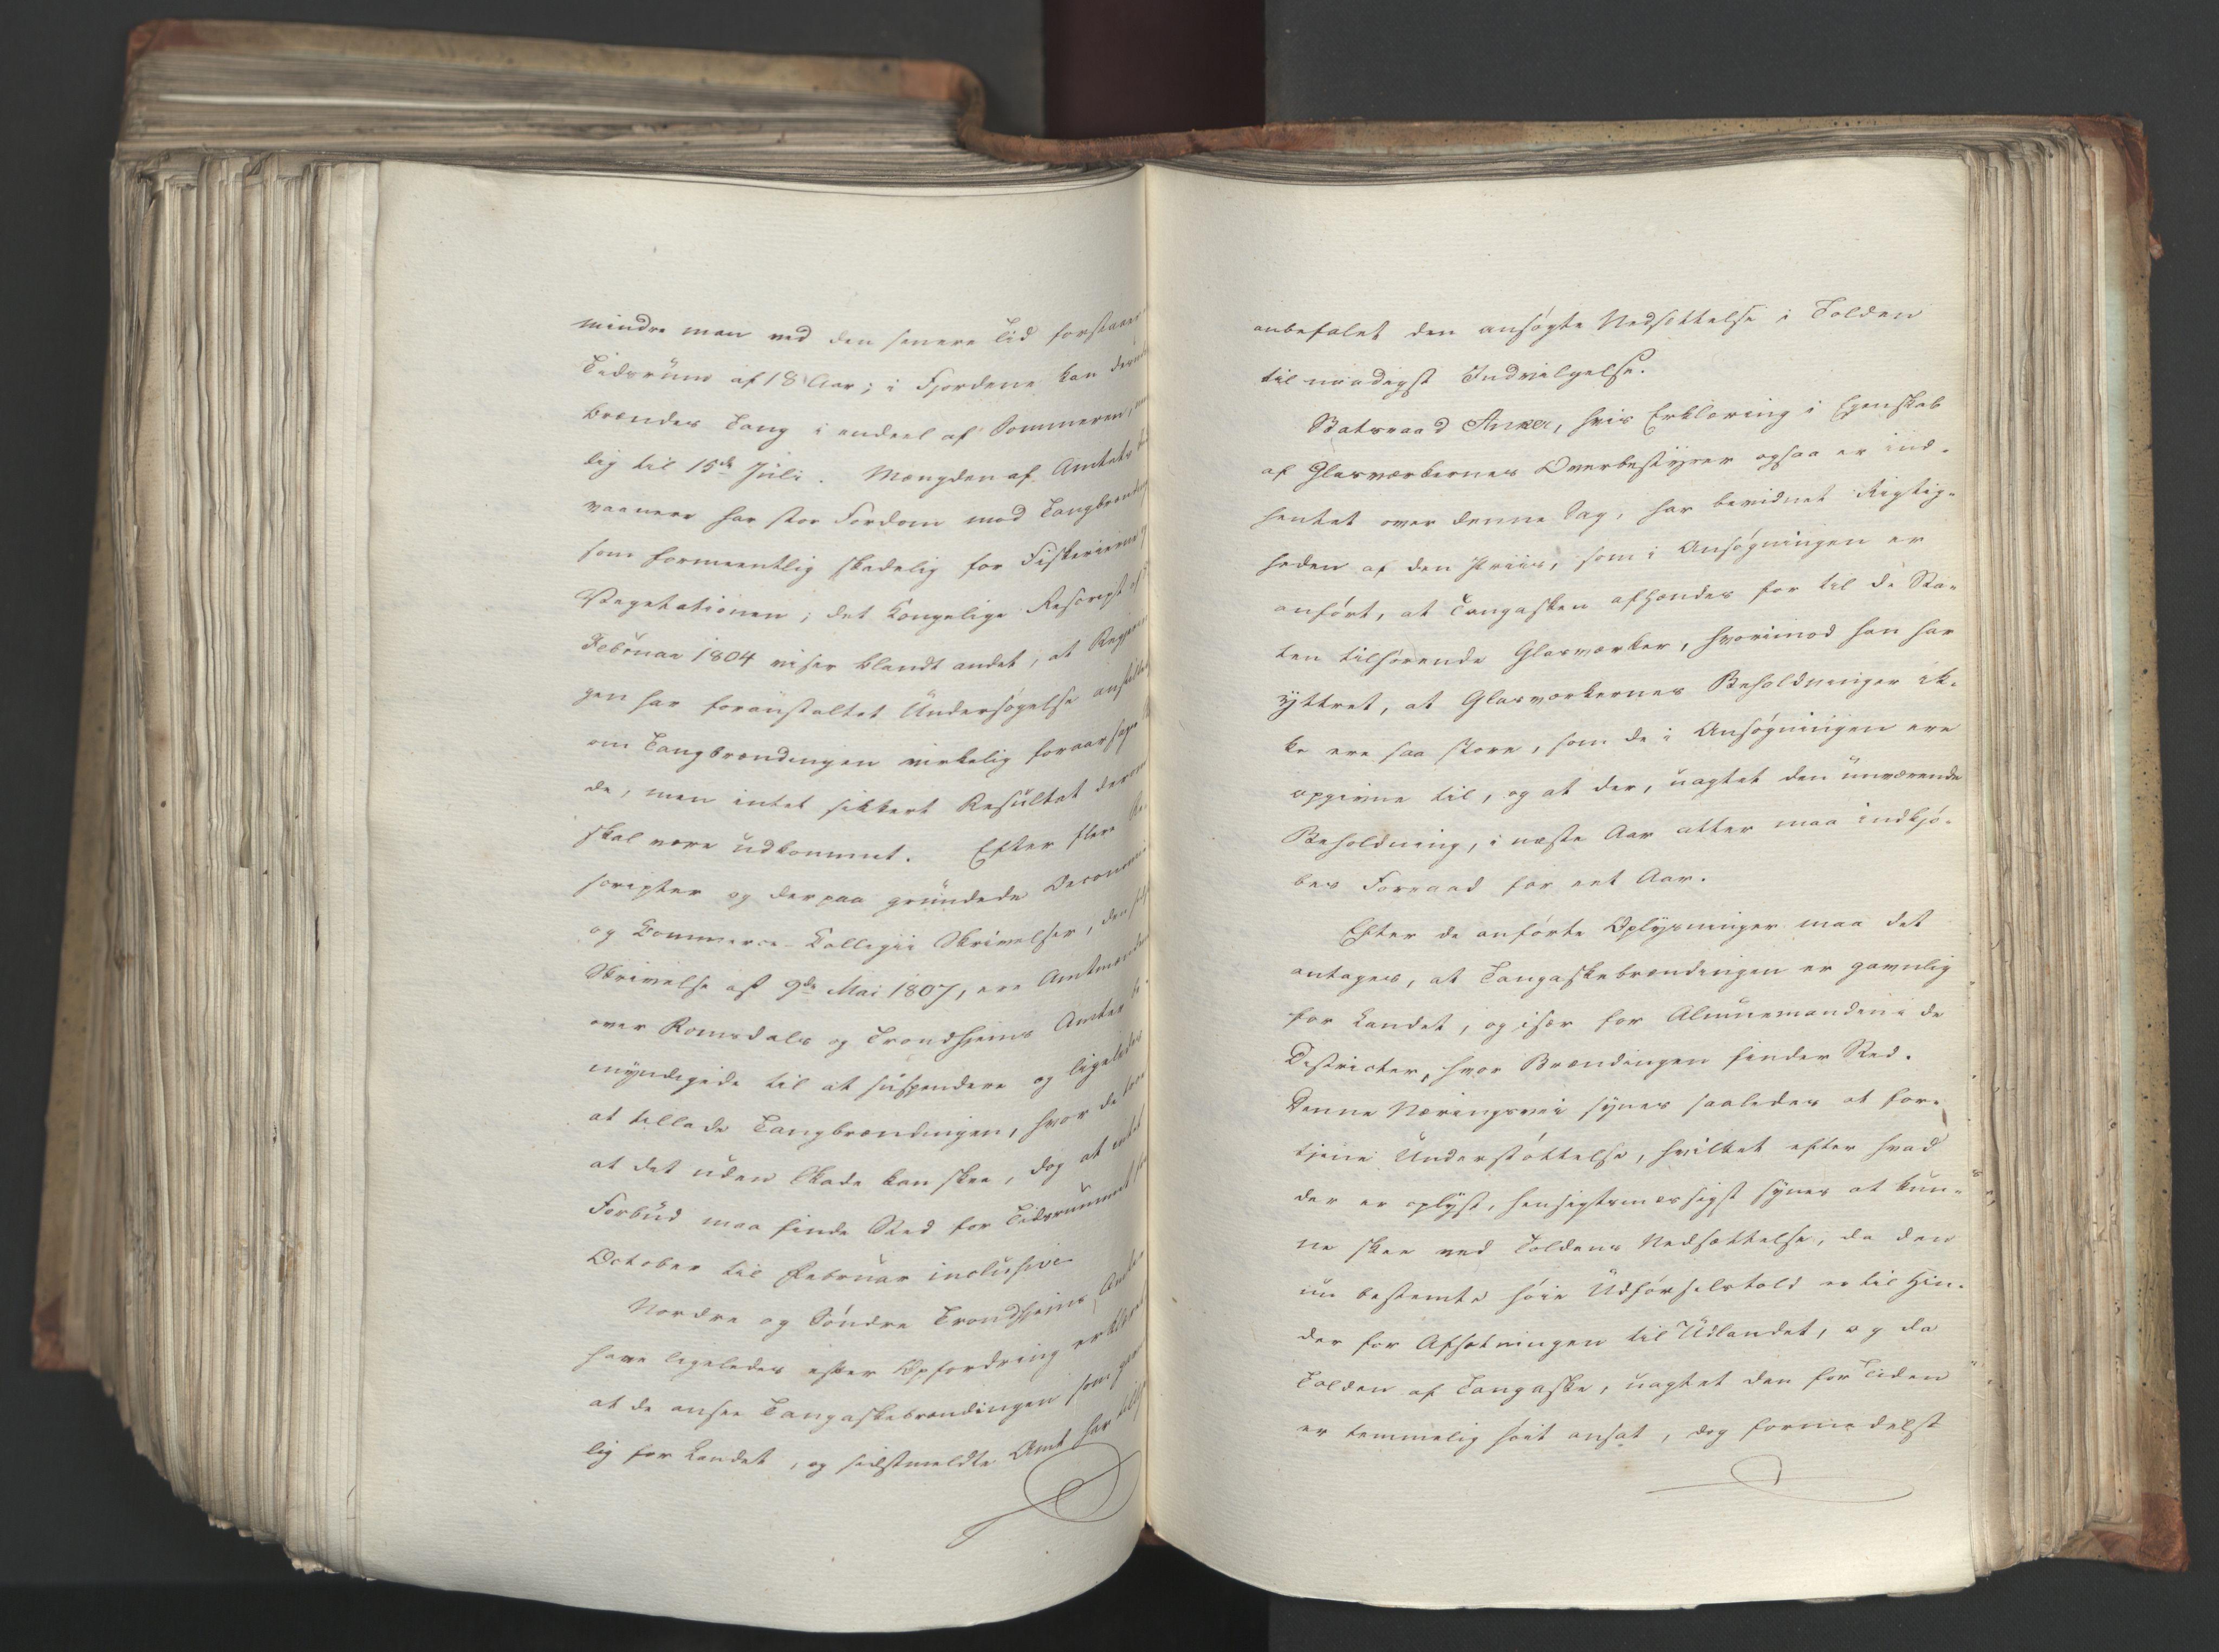 mindre man ved den senere Tid forstaaes
Tidsrum af 18 Aar; i Fjordene kan
brændes Tang i endeel af Sommeren,
dig til 15de Juli. Mængden af Amtets
vaanere har stor Fordom mod Tangbrænd
som formeentlig skadelig for Fiskerierne
Vegetationen; det kongelige Rescript af
Februar 1804 viser blandt andet, at Regjerin
gen har foranstaltet Undersøgelse anstillet
om Tangbrændingen virkelig foraarsager
de, men intet sikkert Resultat deraf
skal være udkommet. Efter flere Re
scripter og derpaa grundede Oeconomie
og Commerce-Collegii Skrivelser, den
Skrivelse af 9de Mai 1807, ere Amtmænd
over Romsdals og Trondhjems Amter be
myndigede til at suspendere og ligeledes
at tillade Tangbrændingen, hvor de
at det uden Skade kan skee, dog at intet
Forbud maa finde Sted for Tidsrummet
October til Februar inclusive
Nordre og Søndre Trondhjems Amter
have ligeledes efter Opfordring erklæret
at de ansee Tangaskebrændingen som gavn
lig for Landet, og sidstmeldte Amt har
anbefalet den ansøgte Nedsættelse i Tolden
til naadigst Indvilgelse.
Statsraad Anker, hvis Erklæring i Egenskab
af Glasværkernes Overbestyrer ogsaa er ind-
hentet over denne Sag, har bevidnet Rigtig-
heden af den Priis, som i Ansøgningen er
anført, at Tangasken afhændes for til de Sta-
ten tilhørende Glasværker, hvorimod han har
yttret, at Glasværkernes Beholdninger ik-
ke ere saa store, som de i Ansøgningen ere
opgivne til, og at der, uagtet den nuværende
Beholdning, i næste Aar atter maa indkjø-
bes Forraad for eet Aar.
Efter de anførte Oplysninger maa det
antages, at Tangaskebrændingen er gavnlig
for Landet, og især for Almuemanden i de
Districter, hvor Brændingen finder Sted.
Denne Næringsvei synes saaledes at for-
tjene Understøttelse, hvilket efter hvad
der er oplyst, hensigtsmæssigst synes at kun-
ne skee ved Toldens Nedsættelse, da den
nu bestemte høie Udførselstold er til Hin-
der for Afsætningen til Udlandet, og da
Tolden af Tangaske, uagtet den for Tiden
er temmelig høit ansat, dog formedelst